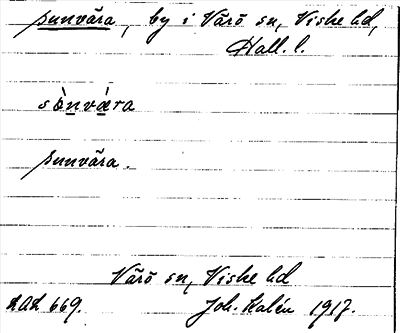 sunvära, by i Värö sn, Viske hd,
Hall. l.
sònvǽra
sunvära.
Värö sn, Viske hd
LAL 669. Joh. Kalén 1917.